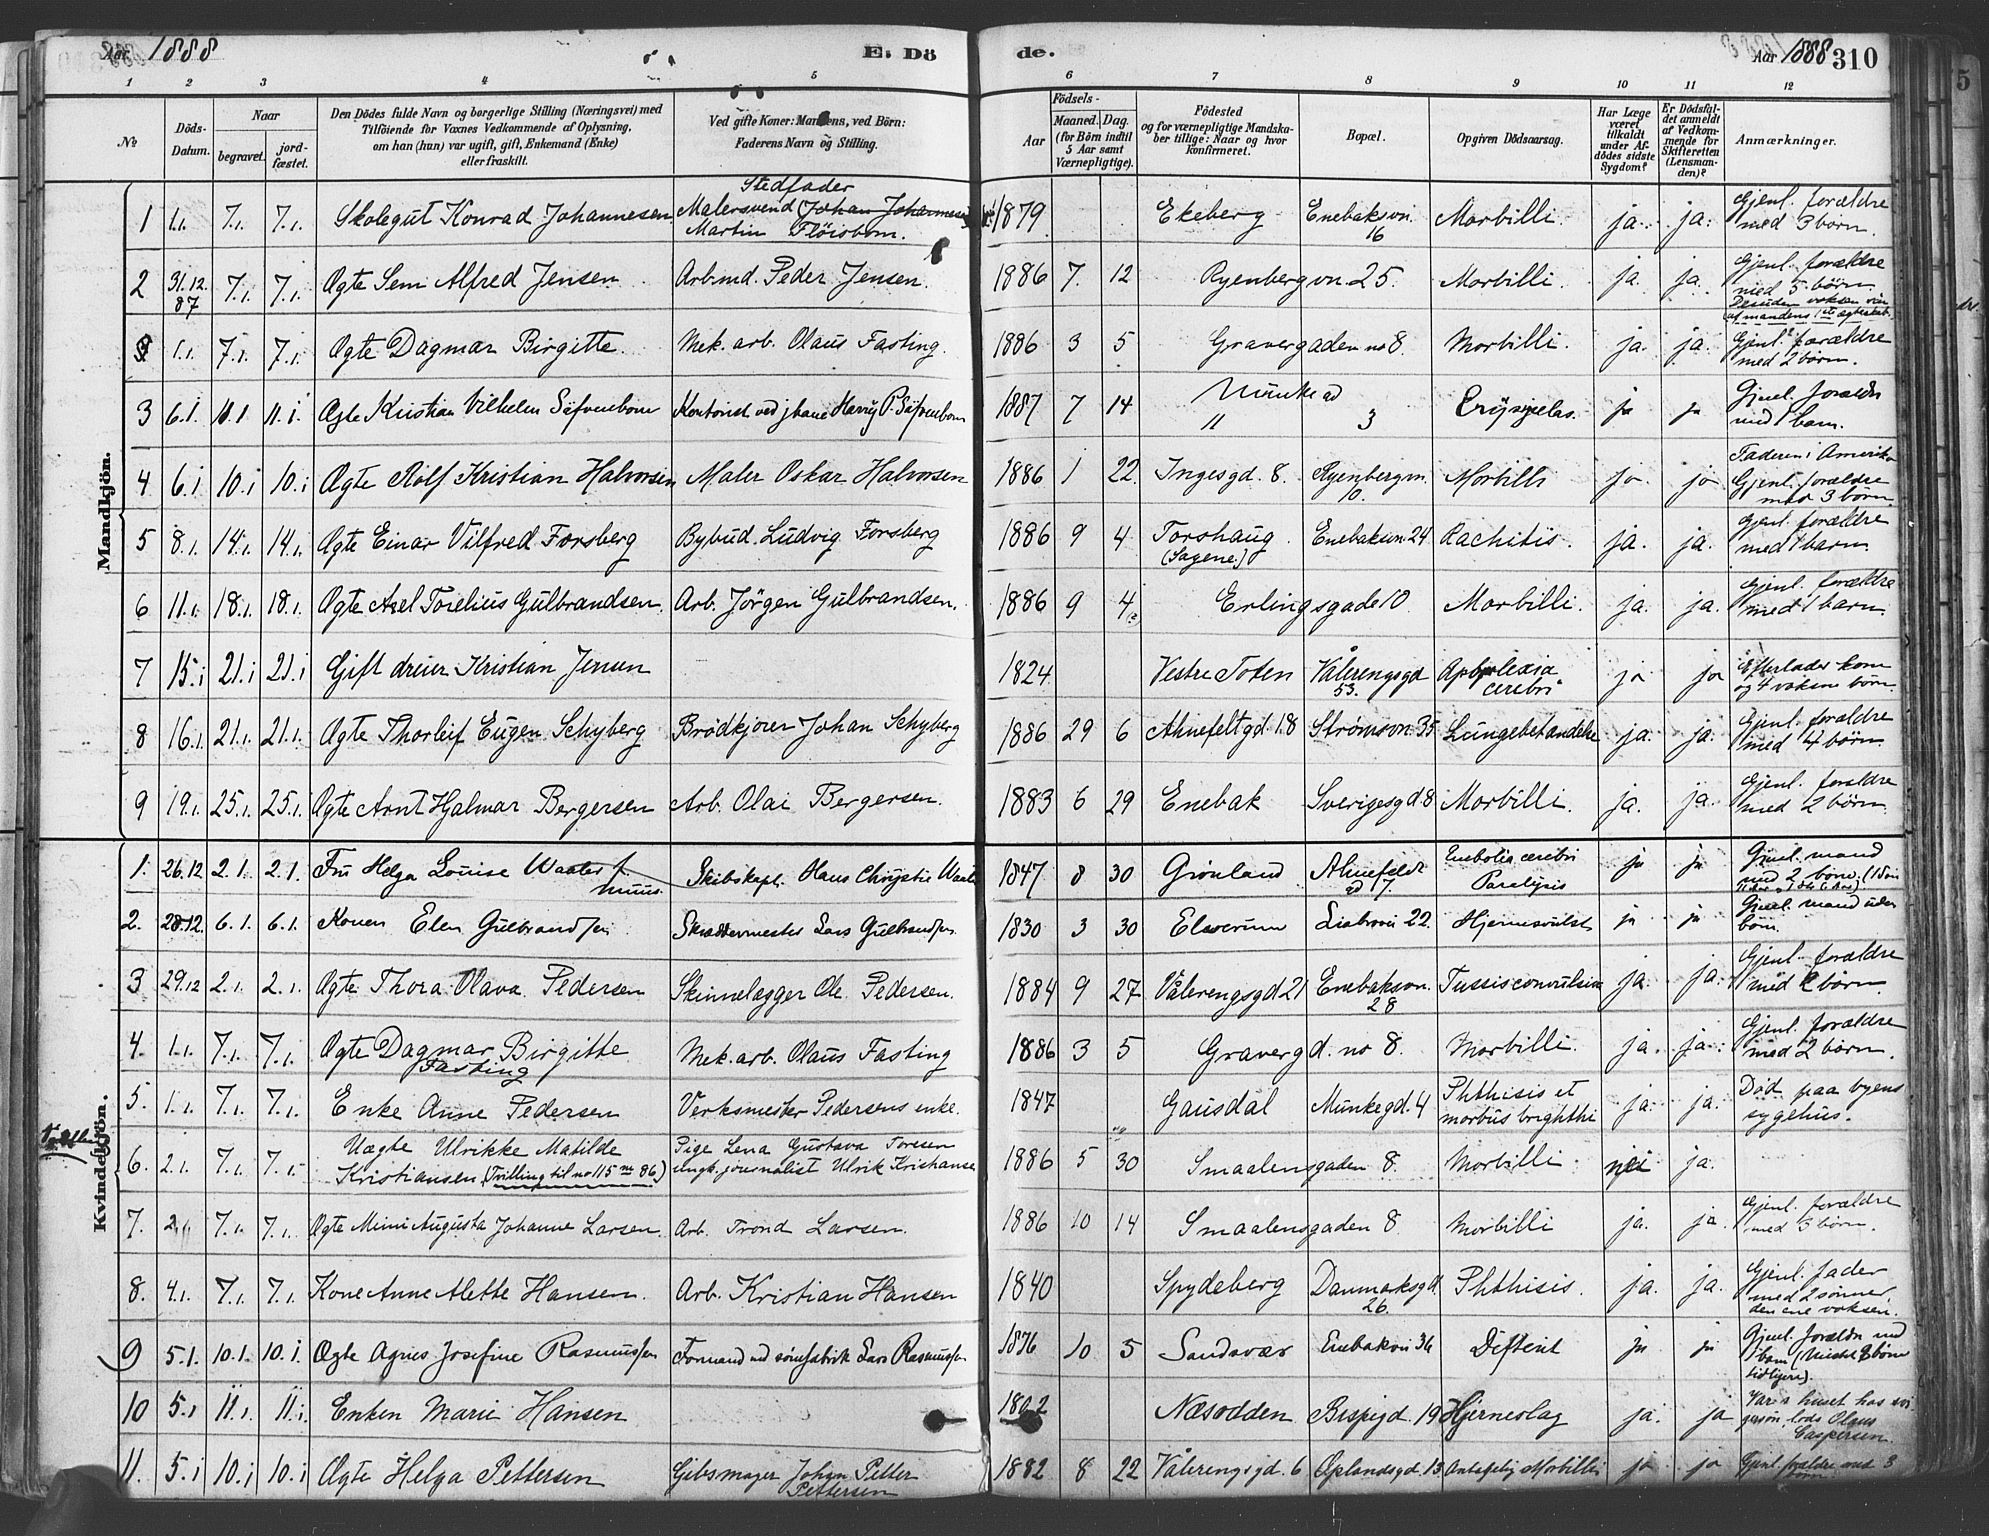 Aar 1888 E. Dö de. Aar 1888 310
1 2 3 4 5 6 7 8 9 10 11 12
№ Döds-Datum. Naar begravet. jordfæstet. Den Dödes fulde Navn og borgerlige Stilling (Næringsvei) med Tilföiende for Voxnes Vedkommende af Oplysning, om han (hun) var ugift, gift, Enkemand (Enke) eller fraskilt. Ved gifte Koner: Mandens, ved Börn: Faderens Navn og Stilling. Födsels- Aar Maaned. Dag. (for Börn indtil 5 Aar samt Værnepligtige). Födested og for værnepligtige Mandskaber tillige: Naar og hvor konfirmeret. Bopæl. Opgiven Dödsaarsag. Har Læge været tilkaldt under Afdödes sidste Sygdom? Er Dödsfaldet anmeldt af Vedkommende for Skifteretten (Lensmanden)? Anmærkninger.
Mandkjön.
1 1.1. 7.1. 7.1. Skolegut Konrad Johannesen Stedfader Malersvend (Johan Johannesen) Martin Fløisbom. 1879 Ekeberg Enebaksvn. 16 Morbilli. ja. ja. Gjenl. forældre med 3 børn.
2 31.12.87 7.1. 7.1. Ægte Sem Alfred Jensen Arb.md. Peder Jensen. 1886 7. 12 Ryenbergvn. 25. Morbilli. ja. ja. Gjenl. forældre med 5 børn. Desuden voksen af mandens 1ste ægteskab.
3 1.1. 7.1. 7.1. Ægte Dagmar Birgitte. Mek. arb. Olaus Fasting. 1886 3 5 Gravergaden no 8. Morbilli. ja. ja. Gjenl. forældre med 2 børn.
3 6.1. 11.1 11.1. Ægte Kristian Vilhelm Söfvenbom Kontorist ved jbane Harry P. Söfvenbom 1887 7 14 Munkegd 11 3 Erysipelas. ja ja Gjenl. forældre med 1 barn.
4 6.1 10.1 10.1 Ægte Rolf Kristian Halvorsen Maler Oskar Halvorsen 1886 1 22. Ingesgd. 8. Ryenbergvn. 10. Morbilli ja ja Faderen i Amerika Gjenl. forældre med 3 børn
5 8.1. 14.1. 14.1. Ægte Einar Vilfred Forsberg Bybud Ludvig Forsberg 1886 9 4 Torshaug. (Sagene.) Enebaksvn. 24 Rachitis. ja. ja. Gjenl. forældre med 1 barn.
6 11.1. 18.1. 18.1. Ægte Axel Torelius Gulbrandsen. Arb. Jörgen Gulbrandsen. 1886 9 4. Erlingsgade 10. Morbilli. ja. ja. Gjenl. forældre med 1 barn.
7 15.1 21.1 21.1 Gift dreier Kristian Jensen 1824. Vestre Toten Vålerengsgd 53. Apoplexia cerebri ja ja Efterlader kone og 4 voksne børn.
8 16.1. 21.1. 21.1. Ægte Thorleif Eugen Schyberg Brödkjörer Johan Schyberg 1886 29 6 Ahnefeltgd. 18 Strømsvn. 35 Lungebetændelse ja. ja. Gjenl. forældre med 4 børn.
9 19.1. 25.1. 25.1. Ægte Arnt Hjalmar Bergersen Arb. Olai Bergersen. 1883 6 29 Enebak Sverigesgd. 8 Morbilli. ja. ja. Gjenl. forældre med 2 børn.
Kvindekjön.
1. 26.12 2.1. 2.1. Fru Helga Louise Waaler f. Skibskapt. Hans Chrystie Waaler 1847 8 30 Grønland Ahnefeldt gd 17. Embolia cerebri Paralysis ja ja Gjenl. mand med 2 børn. (1 søn
2. 28.12. 6.1. 6.1. Konen Elen Gulbrandsen Skræddermester Lars Gulbrandsen. 1830 3 30 Elverum Liabrovn 22. Hjernesvulst ja ja Gjenl. mand uden børn.
3 29.12 2.1. 2.1. Ægte Thora Olava Pedersen Skinnelægger Ole Pedersen. 1884 9 27 Vålerengsgd 21 Enebaksvn. 28 Tussis convulsiva ja. ja. Gjenl. forældre med 2 børn.
4. 1.1. 7.1. 7.1. Ægte Dagmar Birgitte Fasting Mek. arb. Olaus Fasting 1886 3 5 Gravergd. no 8. Morbilli. ja. ja. Gjenl. forældre med 2 børn.
5. 1.1. 7.1. 7.1. Enke Anne Pedersen Verksmester Pedersens enke. 1847 Gausdal Munkegd. 4 Phthisis et morbus brighthi ja. ja. Död paa byens sygehus.
6. 2.1. 7.1. 7.1. Uægte Ulrikke Matilde Kristiansen (Tvilling til no 115 86) Pige Lena Gustava Toresen ungk. journalist Ulrik Kristiansen 1886 5 30 Smaalensgaden 8. Morbilli. nei ja.
7. 2. 7.1. 7.1. Ægte Mimi Augusta Johanne Larsen. Arb. Trond Larsen. 1886 10 14 Smaalensgaden 8 Morbilli ja. ja. Gjenl. forældre med 3 børn.
8. 4.1. 7.1. 7.1. Kone Anne Alette Hansen. Arb. Kristian Hansen 1840 Spydeberg Danmarksgd. 26. Phthisis. ja. ja. Gjenl. fader med 2 sønner, den ene voksen.
9 5.1. 10.1. 10.1. Ægte Agnes Josefine Rasmussen Formand ved Lars Rasmussen 1876 10 5 Sandsvær Enebakvn 36 Difterit ja ja Gjenl. forældre med 1 barn (Mistet 8 børn tidligere).
10 5.1 11.1. 11.1. Enken Marie Hansen 1802 Næsodden Bispegd. 19 Hjerneslag ja. ja Var i huset hos svigersøn, lods Olaus Caspersen.
11. 5.1 10.1 10.1 Ægte Helga Pettersen Gibsmager Johan Petter Pettersen 1882 8 22 Vålerengsgd. 6 Oplandsgd. 13 Antagelig Morbilli ja ja Gjenl. forældre med 3 børn.